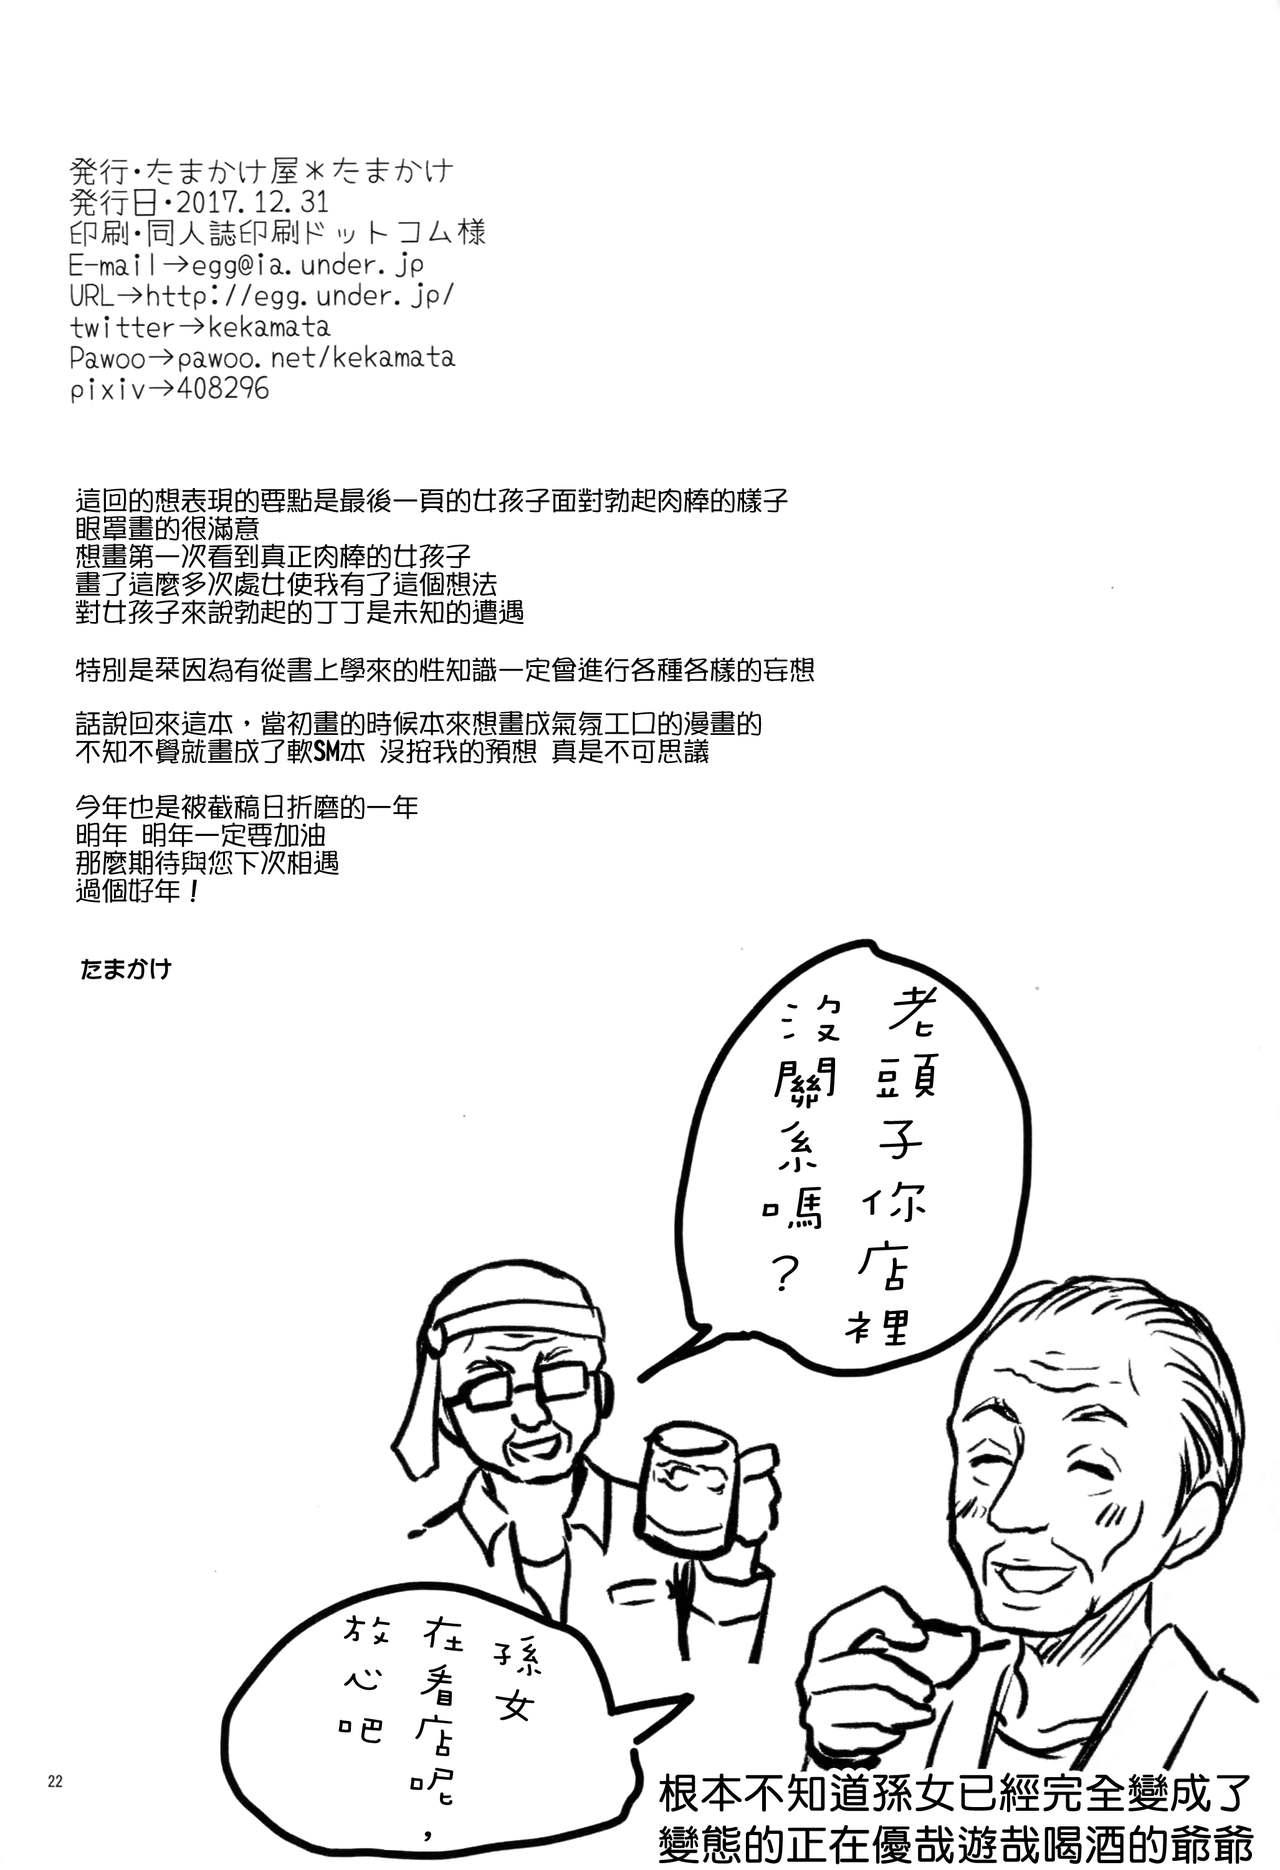 発行・たまかけ屋＊たまかけ
発行日・2017.12.31
印刷・同人誌印刷ドットコム様
E-mail→egg@ia.under.jp
URL→http://egg.under.jp/
twitter→kekamata
Pawoo→pawoo.net/kekamata
pixiv→408296
這回的想表現的要點是最後一頁的女孩子面對勃起肉棒的樣子
眼罩畫的很滿意
想畫第一次看到真正肉棒的女孩子
畫了這麼多次處女使我有了這個想法
對女孩子來說勃起的丁丁是未知的遭遇
特別是栞因為有從書上學來的性知識一定會進行各種各樣的妄想
話說回來這本，當初畫的時候本來想畫成氣氛工口的漫畫的
不知不覺就畫成了軟SM本 沒按我的預想 真是不可思議
今年也是被截稿日折磨的一年
明年 明年一定要加油
那麼期待與您下次相遇
過個好年！
たまかけ
老頭子你店裡
沒關系嗎？
孫女
在看店呢，
放心吧
根本不知道孫女已經完全變成了
變態的正在優哉遊哉喝酒的爺爺
22